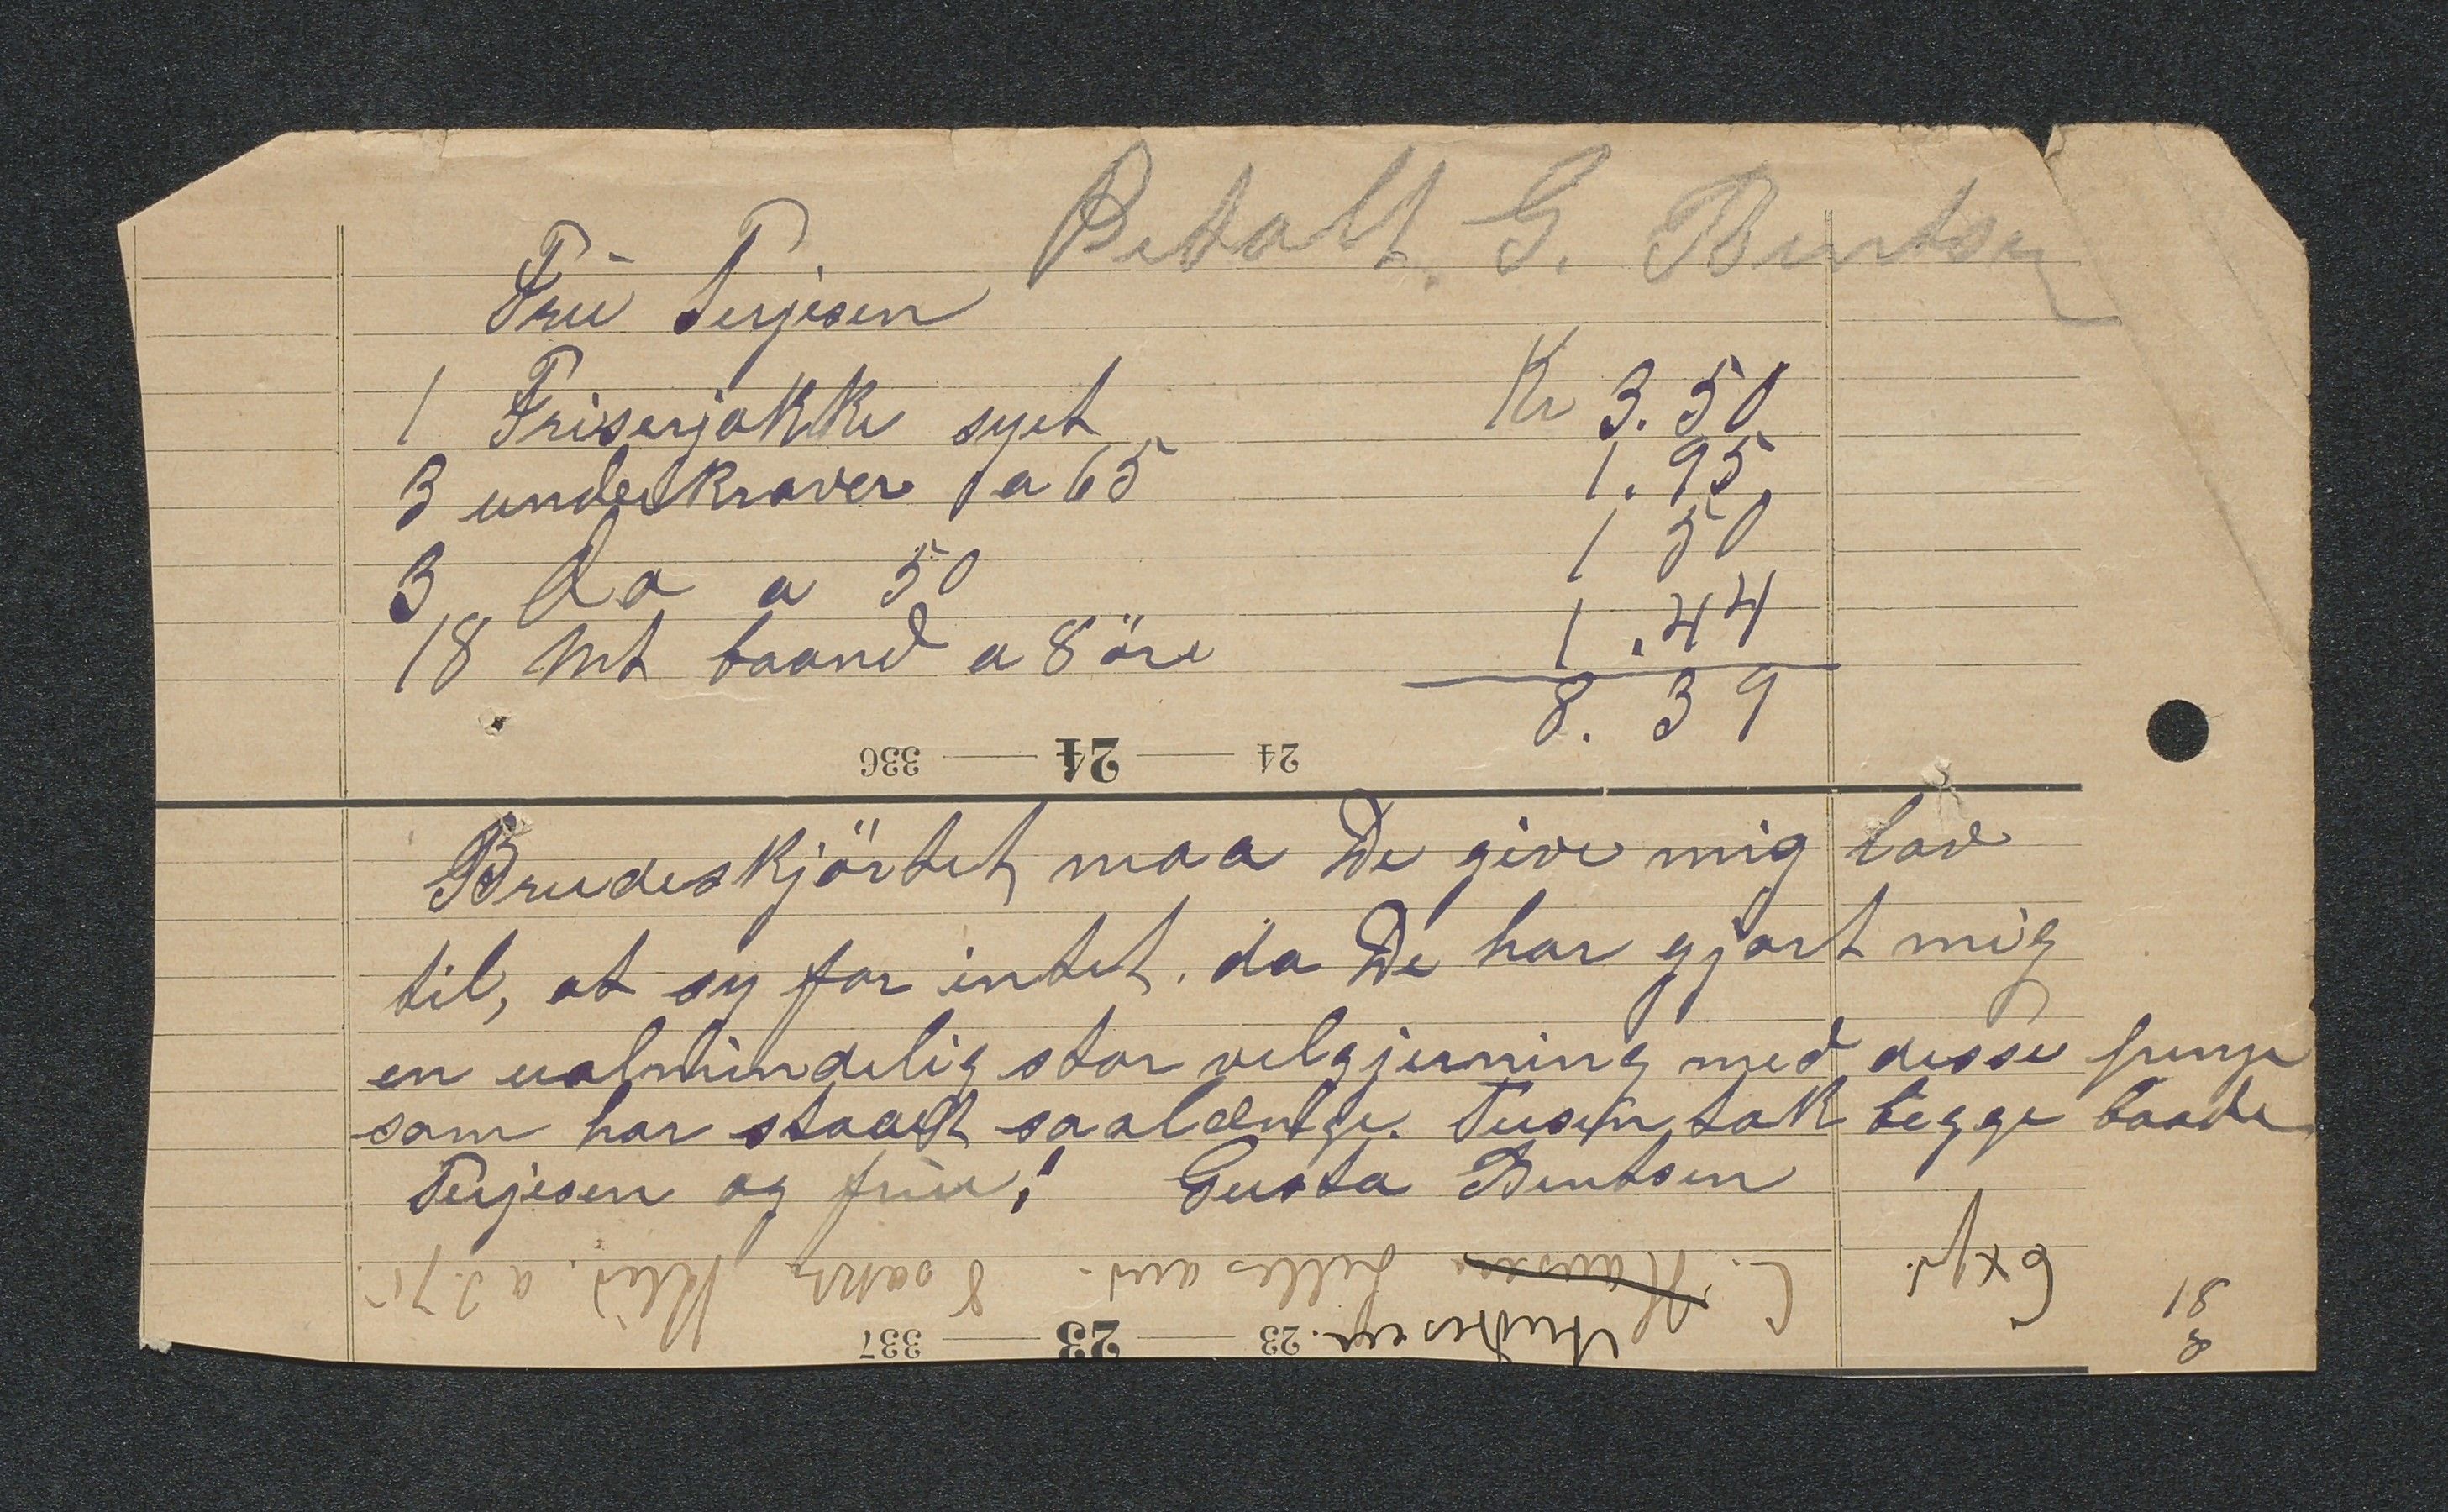 Betalt. G. Bentsen
Frü Terjesen
1 Friserjakke syet Kr 3.50
3 underkraver a 65 1.95
3 Do a 50 1 50
18 mt baand a 8 öre 1.44
8.39
24 — 24 — 336
Brudeskjörtet maa De give mig lov
til, at sy for intet. da De har gjort mig
en ualmindelig stor velgjerning med disse penge
som har staaet saalænge. Tusin tak begge baade
Terjesen og früe! Gusta Bentsen
Expd. C. Hansen Lillesand. 8 sække Klid. a 3.75
Andresen.
23 — 23 — 337
18
8